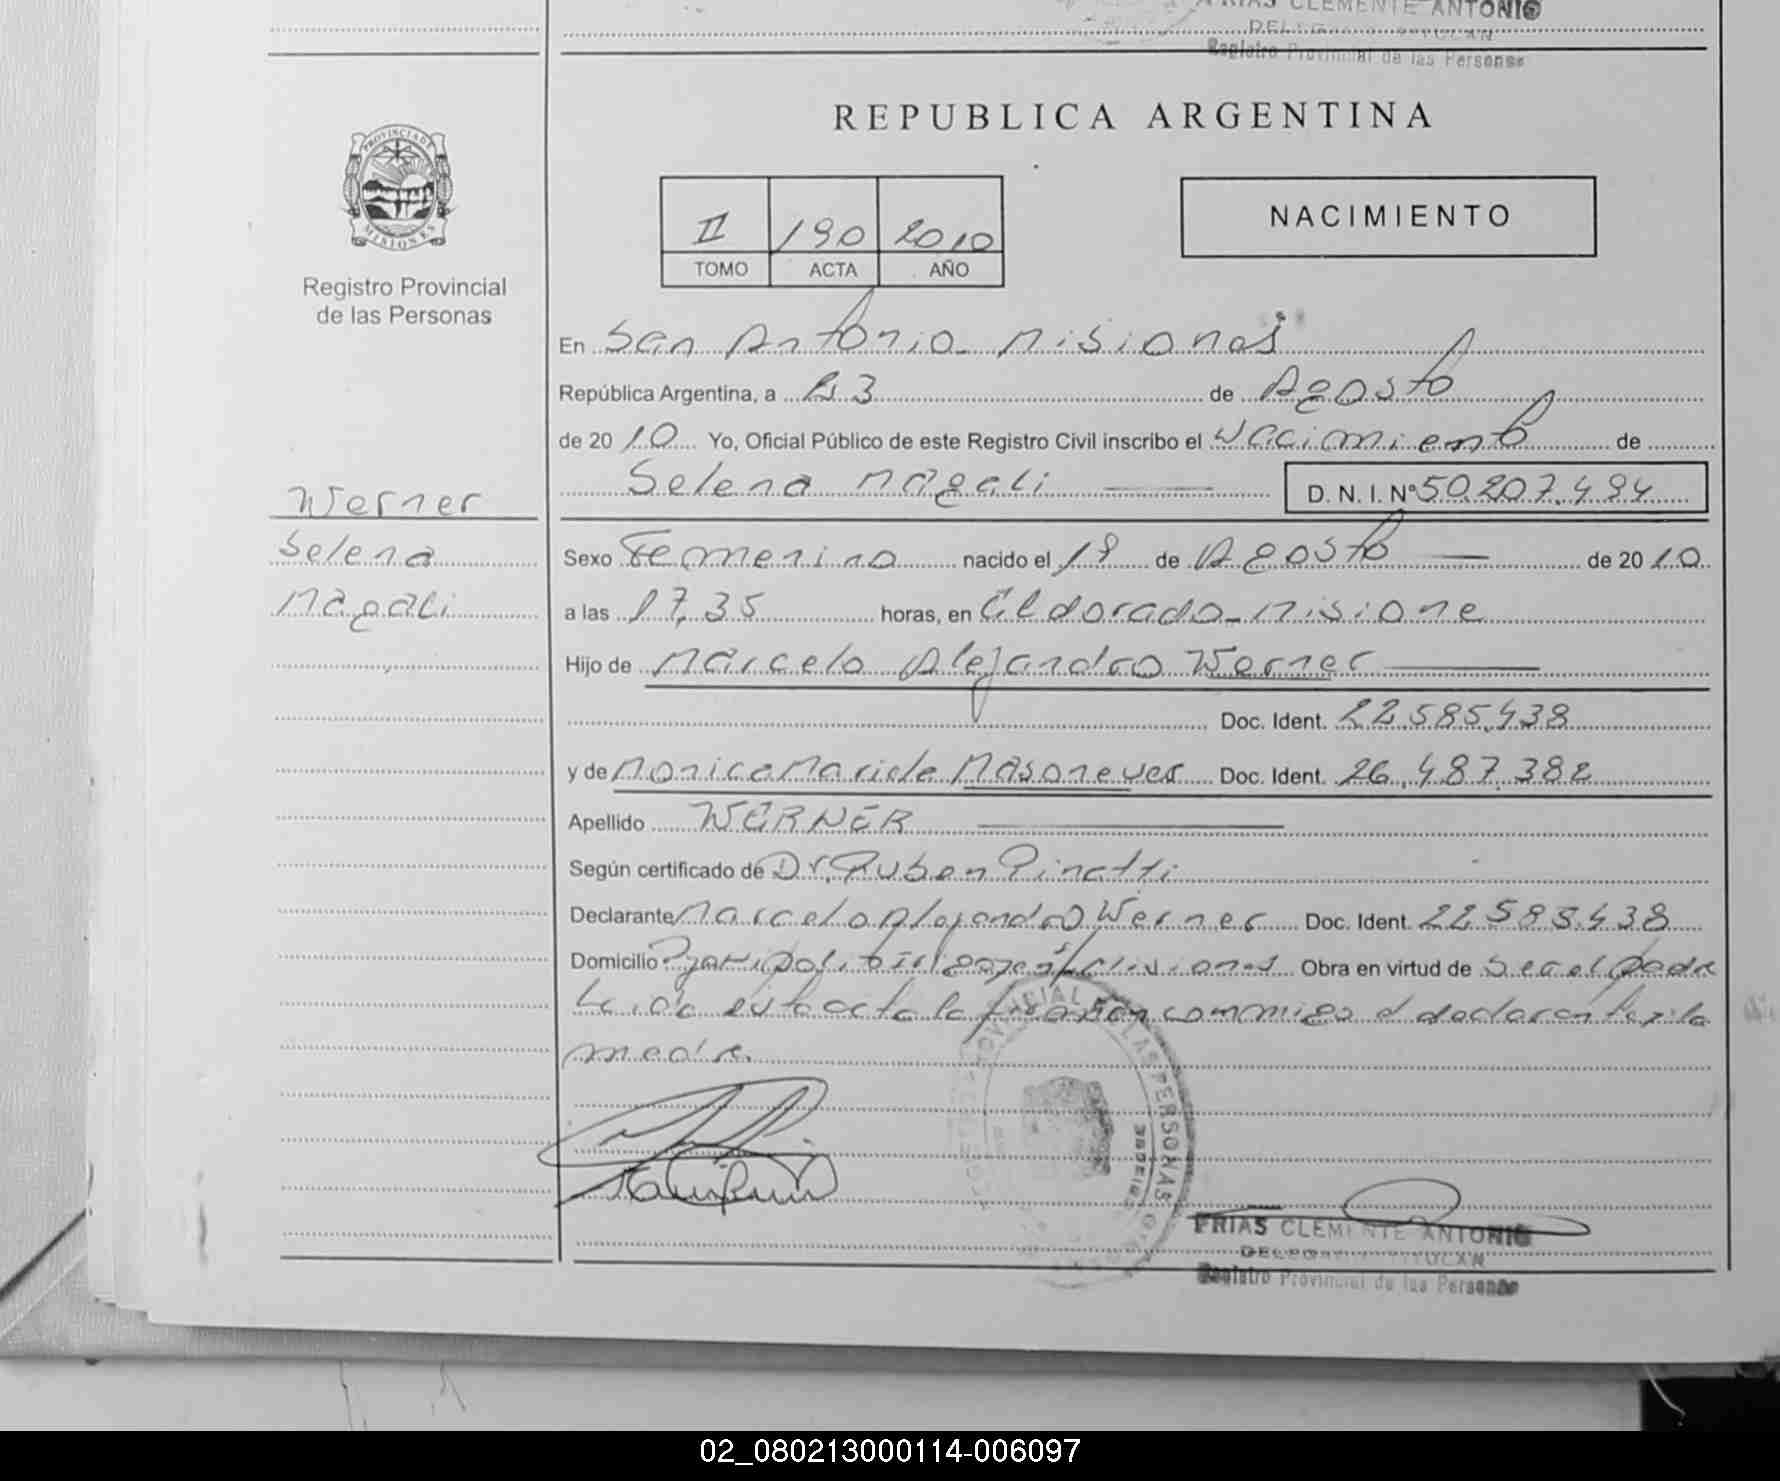 FRIAS CLEMENTE ANTONIO
Registro Provincial de las Personas
REPUBLICA ARGENTINA
PROVINCIA DE
MISIONES
II 190 2010
TOMO ACTA AÑO
NACIMIENTO
Registro Provincial
de las Personas
En San Antonio - Misiones
República Argentina, a 23 de Agosto
de 2010 Yo, Oficial Público de este Registro Civil inscribo el Nacimiento de
Selena Magali D. N. I. Nº 50.207.494
Werner
Selena
Magali
Sexo Femenino nacido el 18 de Agosto de 2010
a las 17,35 horas, en Eldorado - Misione
Hijo de Marcelo Alejandro Werner
Doc. Ident. 22.585.438
y de Monica Mariela Doc. Ident. 26.487.382
Apellido WERNER
Según certificado de Dr. Ruben
Declarante Marcelo Alejandro Werner Doc. Ident. 22.585.438
Domicilio Misiones Obra en virtud de Ser el padre
Leida esta acta la firman conmigo el declarante y la
madre.
FRIAS CLEMENTE ANTONIO
DELEGADO TITULAR
Registro Provincial de las Personas
02_080213000114-006097